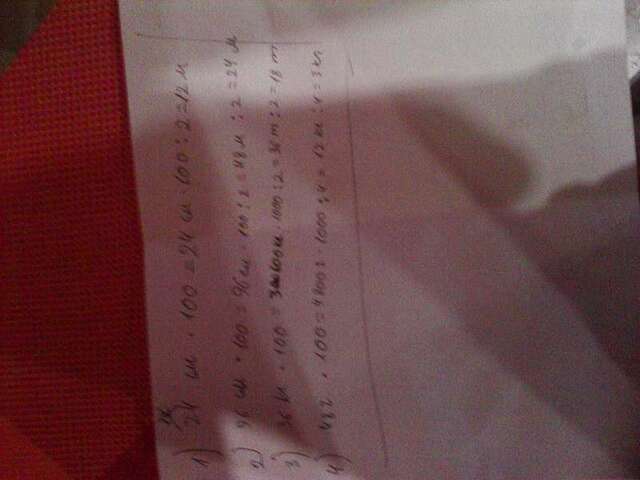 1) 24 см · 100 = 24 м · 100 : 2 = 12 м
2) 96 см · 100 = 96 м · 100 : 2 = 48 м : 2 = 24 м
3) 36 м · 100 = 3600 м · 1000 : 2 = 36 m : 2 = 18 m
4) 482 · 100 = 4800 : 1000 : 4 = 12 м : 4 = 3 м